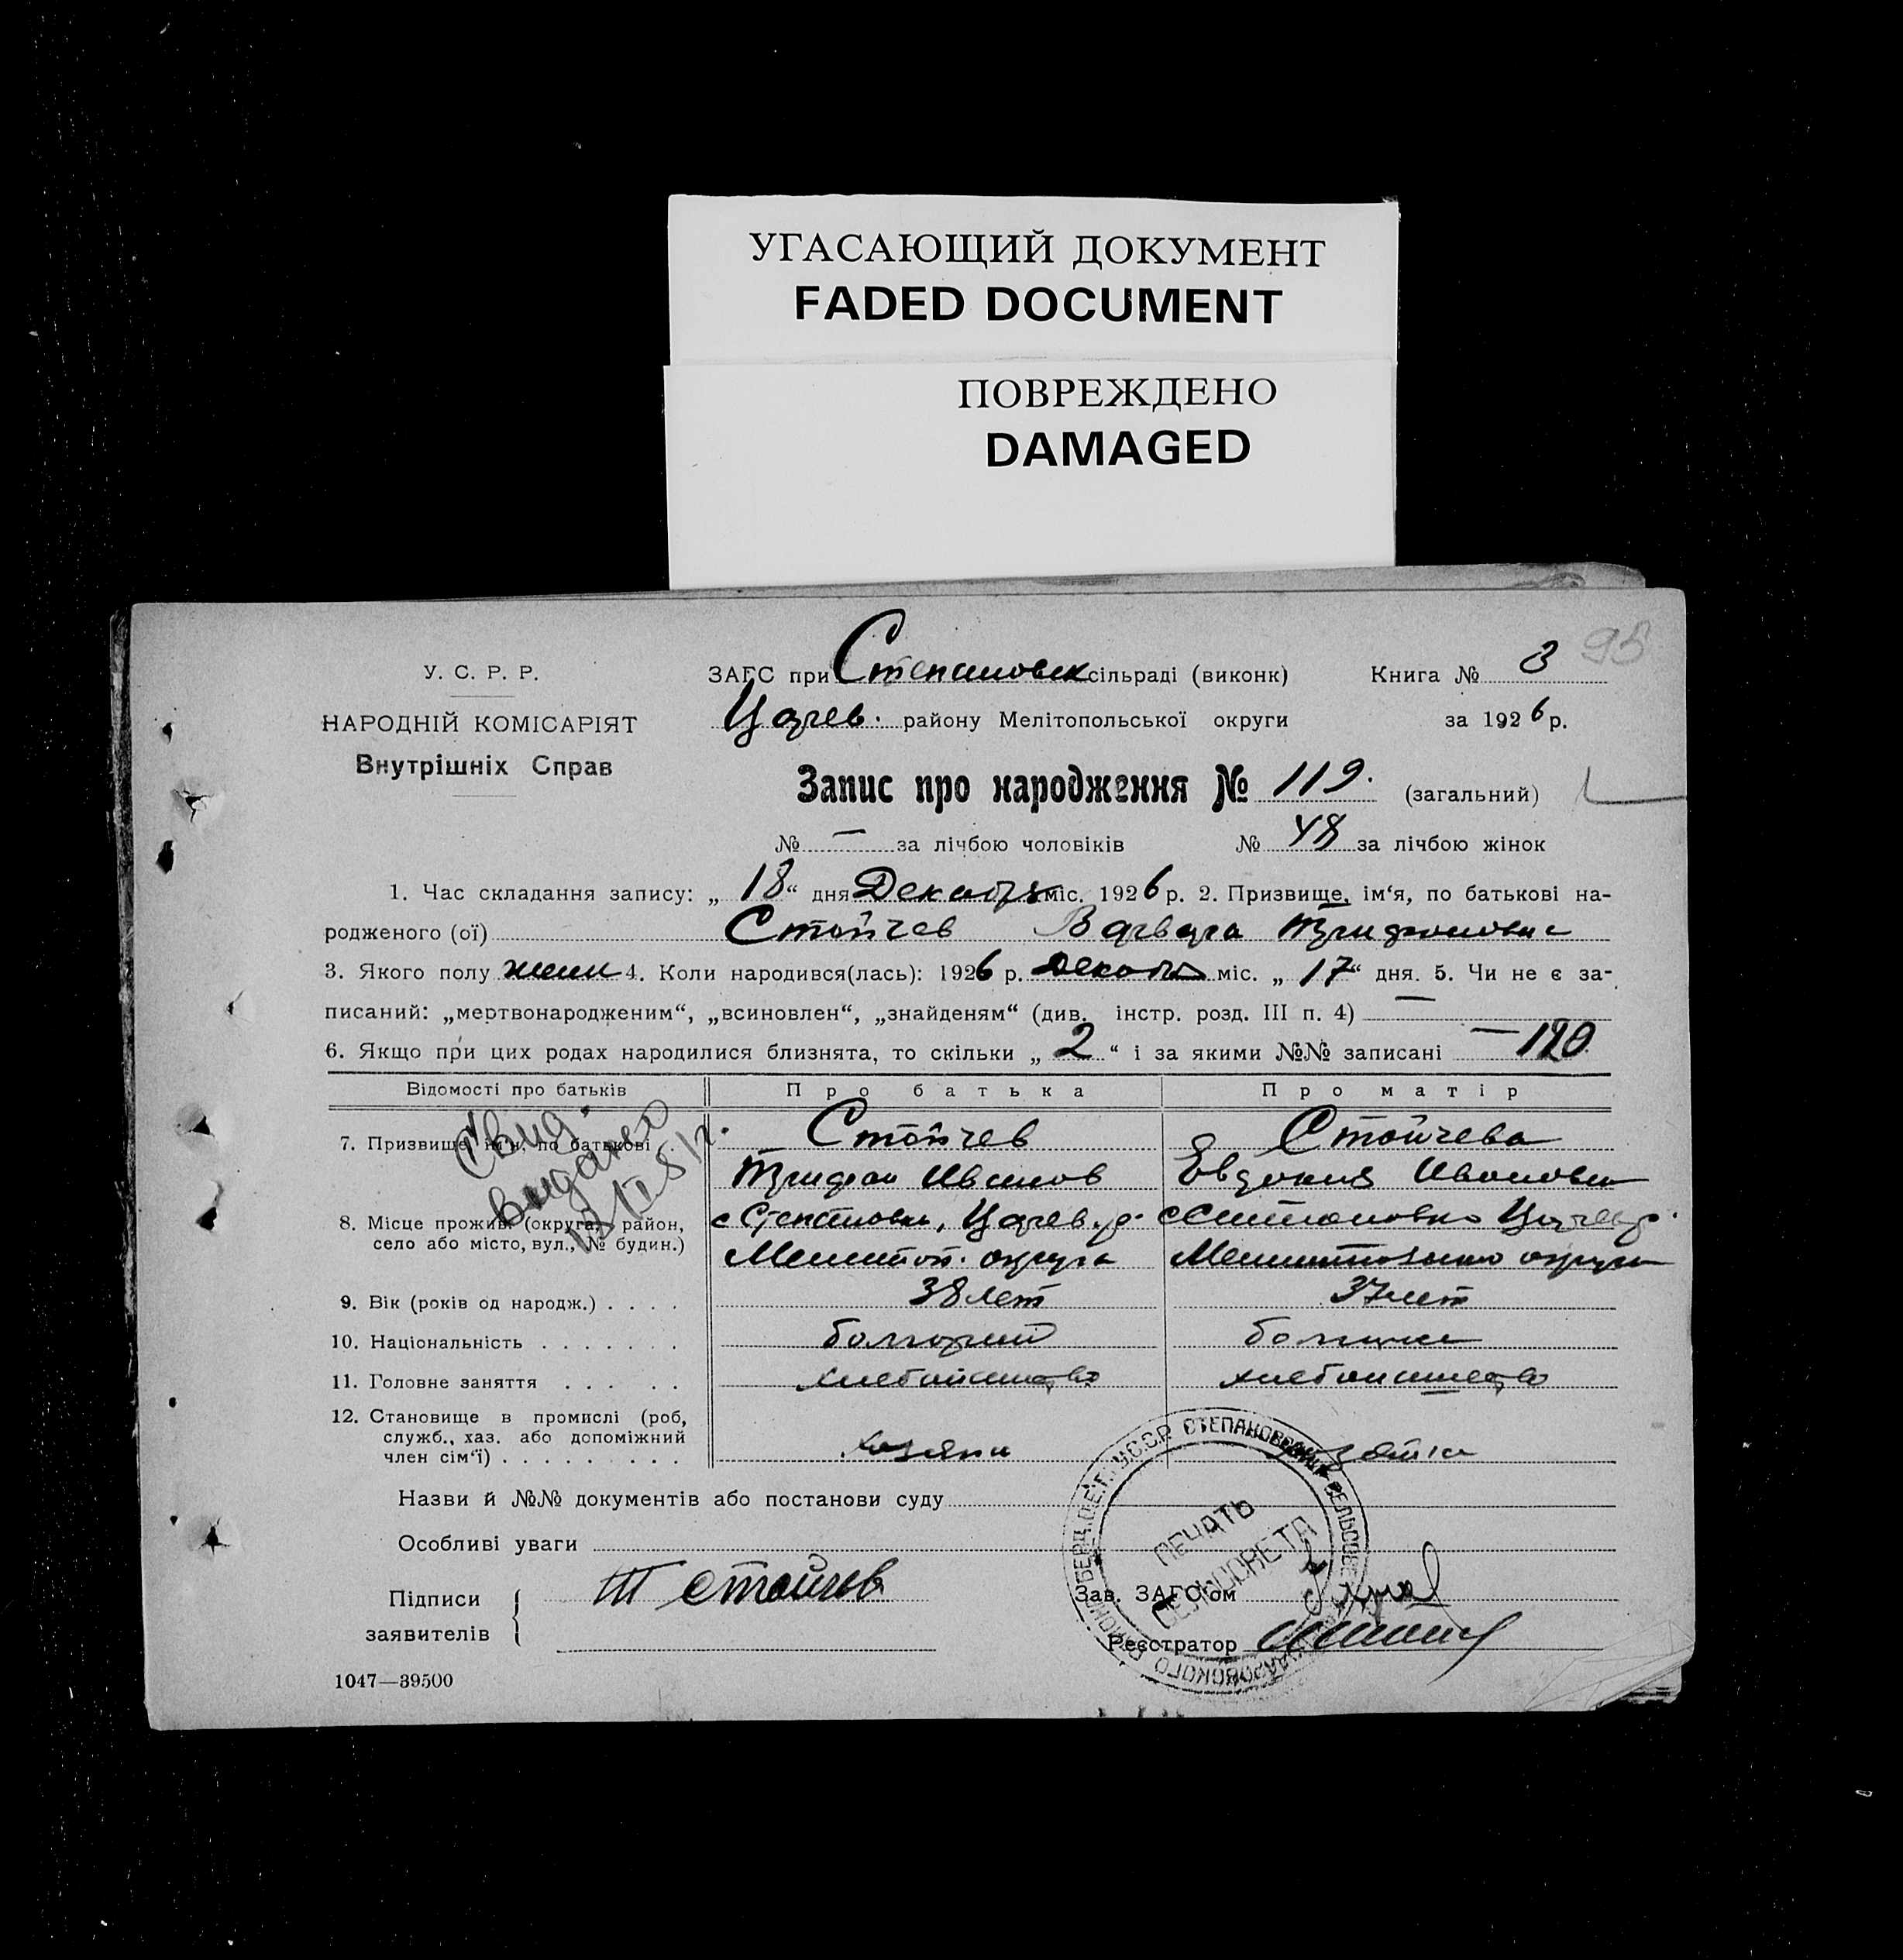 УГАСАЮЩИЙ ДОКУМЕНТ
FADED DOCUMENT
ПОВРЕЖДЕНО
DAMAGED
98
У. С. Р. Р.
НАРОДНІЙ КОМІСАРІЯТ
Внутрішніх Справ
ЗАГС при Степановск сільраді (виконк) Книга № 3
Цареv. району Мелітопольської округи за 1926 р.
Запис про народження № 119. (загальний)
№ — за лічбою чоловіків № 48 за лічбою жінок
1. Час складання запису: „ 18 “ дня Декабря міс. 1926 р. 2. Призвище, ім‘я, по батькові на-
родженого (ої) Стойчев Варвара Трифоновна
3. Якого полу женс 4. Коли народився(лась): 1926 р. Декабря міс. „ 17 “ дня. 5. Чи не є за-
писаний: „мертвонародженим“, „всиновлен“, „знайденям“ (див. інстр. розд. III п. 4) —
6. Якщо при цих родах народилися близнята, то скільки „ 2 “ і за якими №№ записані — 120
Відомості про батьків Про батька Про матір
7. Призвище, ім‘я, по батькові . Стойчев Стойчева
Трифон Иванов Евдокия Ивановна
Свид.
выдано
8. Місце прожив. (округа, район, с Степановка, Царев. р. с Степановка Царев р.
село або місто, вул., № будин.) Мелитоп. округа Мелитопольско округа
9. Вік (років од народж.) . . . . 38 лет 37 лет
10. Національність . . . . . . . болгарин болгарка
11. Головне заняття . . . . . хлебопашество хлебопашество
12. Становище в промислі (роб,
служб., хаз. або допоміжний
член сім‘ї) . . . . . . . . . хозяин хозяйка
Назви й №№ документів або постанови суду
Особливі уваги
Підписи
заявителів
Т Стойчев
Зав. ЗАГС‘ом
Реєстратор
У.С.С.Р. СТЕПАНОВСКИЙ СЕЛЬСОВЕТ
ПЕЧАТЬ
СЕЛЬСОВЕТА
1047—39500